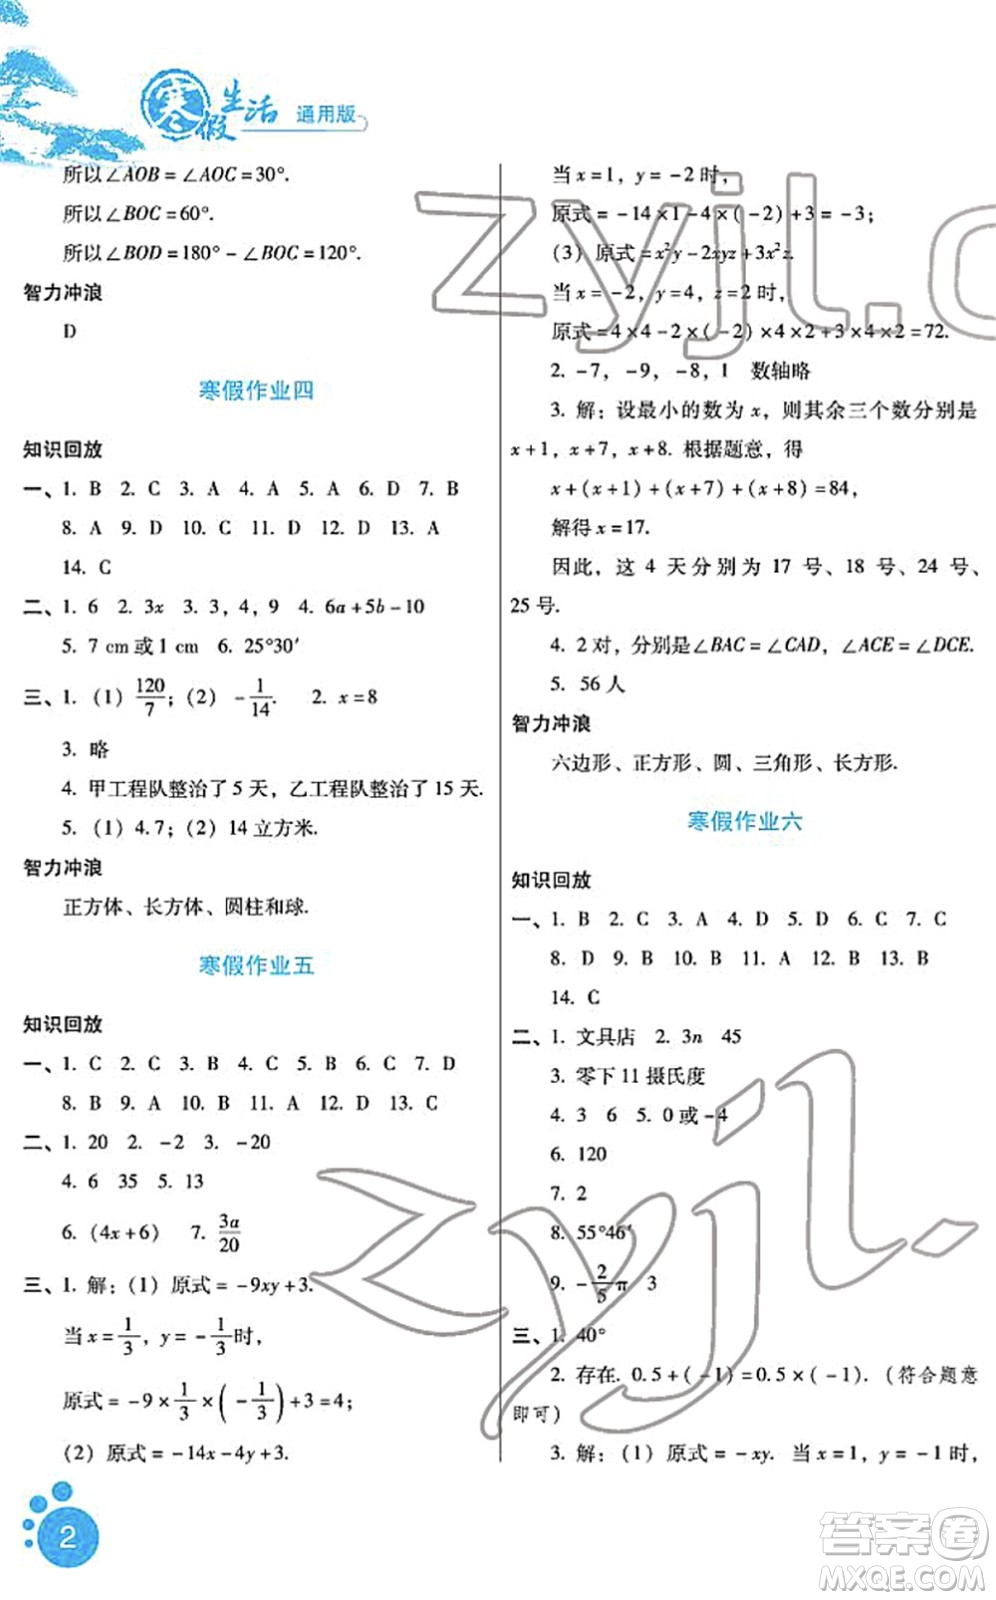 寒假生活 通用版
所以∠AOB=∠AOC=30°.
所以∠BOC=60°.
所以∠BOD=180°-∠BOC=120°.
智力冲浪
D
寒假作业四
知识回放
一、1. B 2. C 3. A 4. A 5. A 6. D 7. B
8. A 9. D 10. C 11. D 12. D 13. A
14. C
二、1. 6 2. 3x 3. 3, 4, 9 4. 6a+5b-10
5. 7 cm或1 cm 6. 25°30′
三、1. (1) 120/7; (2) -1/14. 2. x=8
3. 略
4. 甲工程队整治了5天, 乙工程队整治了15天.
5. (1) 4.7; (2) 14立方米.
智力冲浪
正方体、长方体、圆柱和球.
寒假作业五
知识回放
一、1. C 2. C 3. B 4. C 5. C 6. C 7. D
8. B 9. A 10. B 11. A 12. D 13. C
二、1. 20 2. -2 3. -20
4. 6 35 5. 13
6. (4x+6) 7. 3a/20
三、1. 解: (1) 原式=-9xy+3.
当x=1/3, y=-1/3时,
原式=-9×1/3×(-1/3)+3=4;
(2) 原式=-14x-4y+3.
当x=1, y=-2时,
原式=-14×1-4×(-2)+3=-3;
(3) 原式=x²y-2xyz+3x²z.
当x=-2, y=4, z=2时,
原式=4×4-2×(-2)×4×2+3×4×2=72.
2. -7, -9, -8, 1 数轴略
3. 解: 设最小的数为x, 则其余三个数分别是
x+1, x+7, x+8. 根据题意, 得
x+(x+1)+(x+7)+(x+8)=84,
解得x=17.
因此, 这4天分别为17号、18号、24号、
25号.
4. 2对, 分别是∠BAC=∠CAD, ∠ACE=∠DCE.
5. 56人
智力冲浪
六边形、正方形、圆、三角形、长方形.
寒假作业六
知识回放
一、1. B 2. C 3. A 4. D 5. D 6. C 7. C
8. D 9. B 10. B 11. A 12. B 13. B
14. C
二、1. 文具店 2. 3n 45
3. 零下11摄氏度
4. 3 6 5. 0或-4
6. 120
7. 2
8. 55°46′
9. -2/5π 3
三、1. 40°
2. 存在. 0.5+(-1)=0.5×(-1). (符合题意
即可)
3. 解: (1) 原式=-xy. 当x=1, y=-1时,
2
zyjl.c
zyjl.
答案圈
MXQE.COM